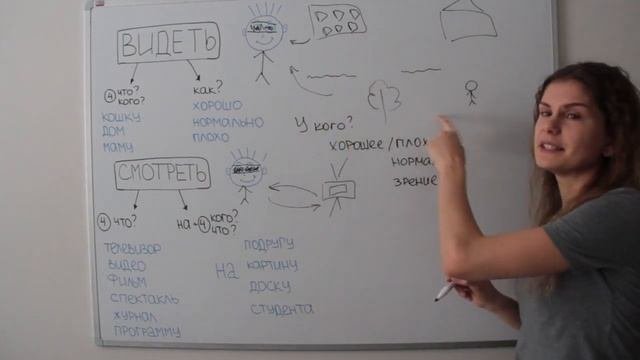 ВИДЕТЬ
④ что?
кого?
как?
кошку
дом
маму
хорошо
нормально
плохо
У кого?
хорошее / плох
норма
зрение
СМОТРЕТЬ
④ что?
на+④ кого?
что?
телевизор
видео
фильм
спектакль
журнал
программу
на
подругу
картину
доску
студента